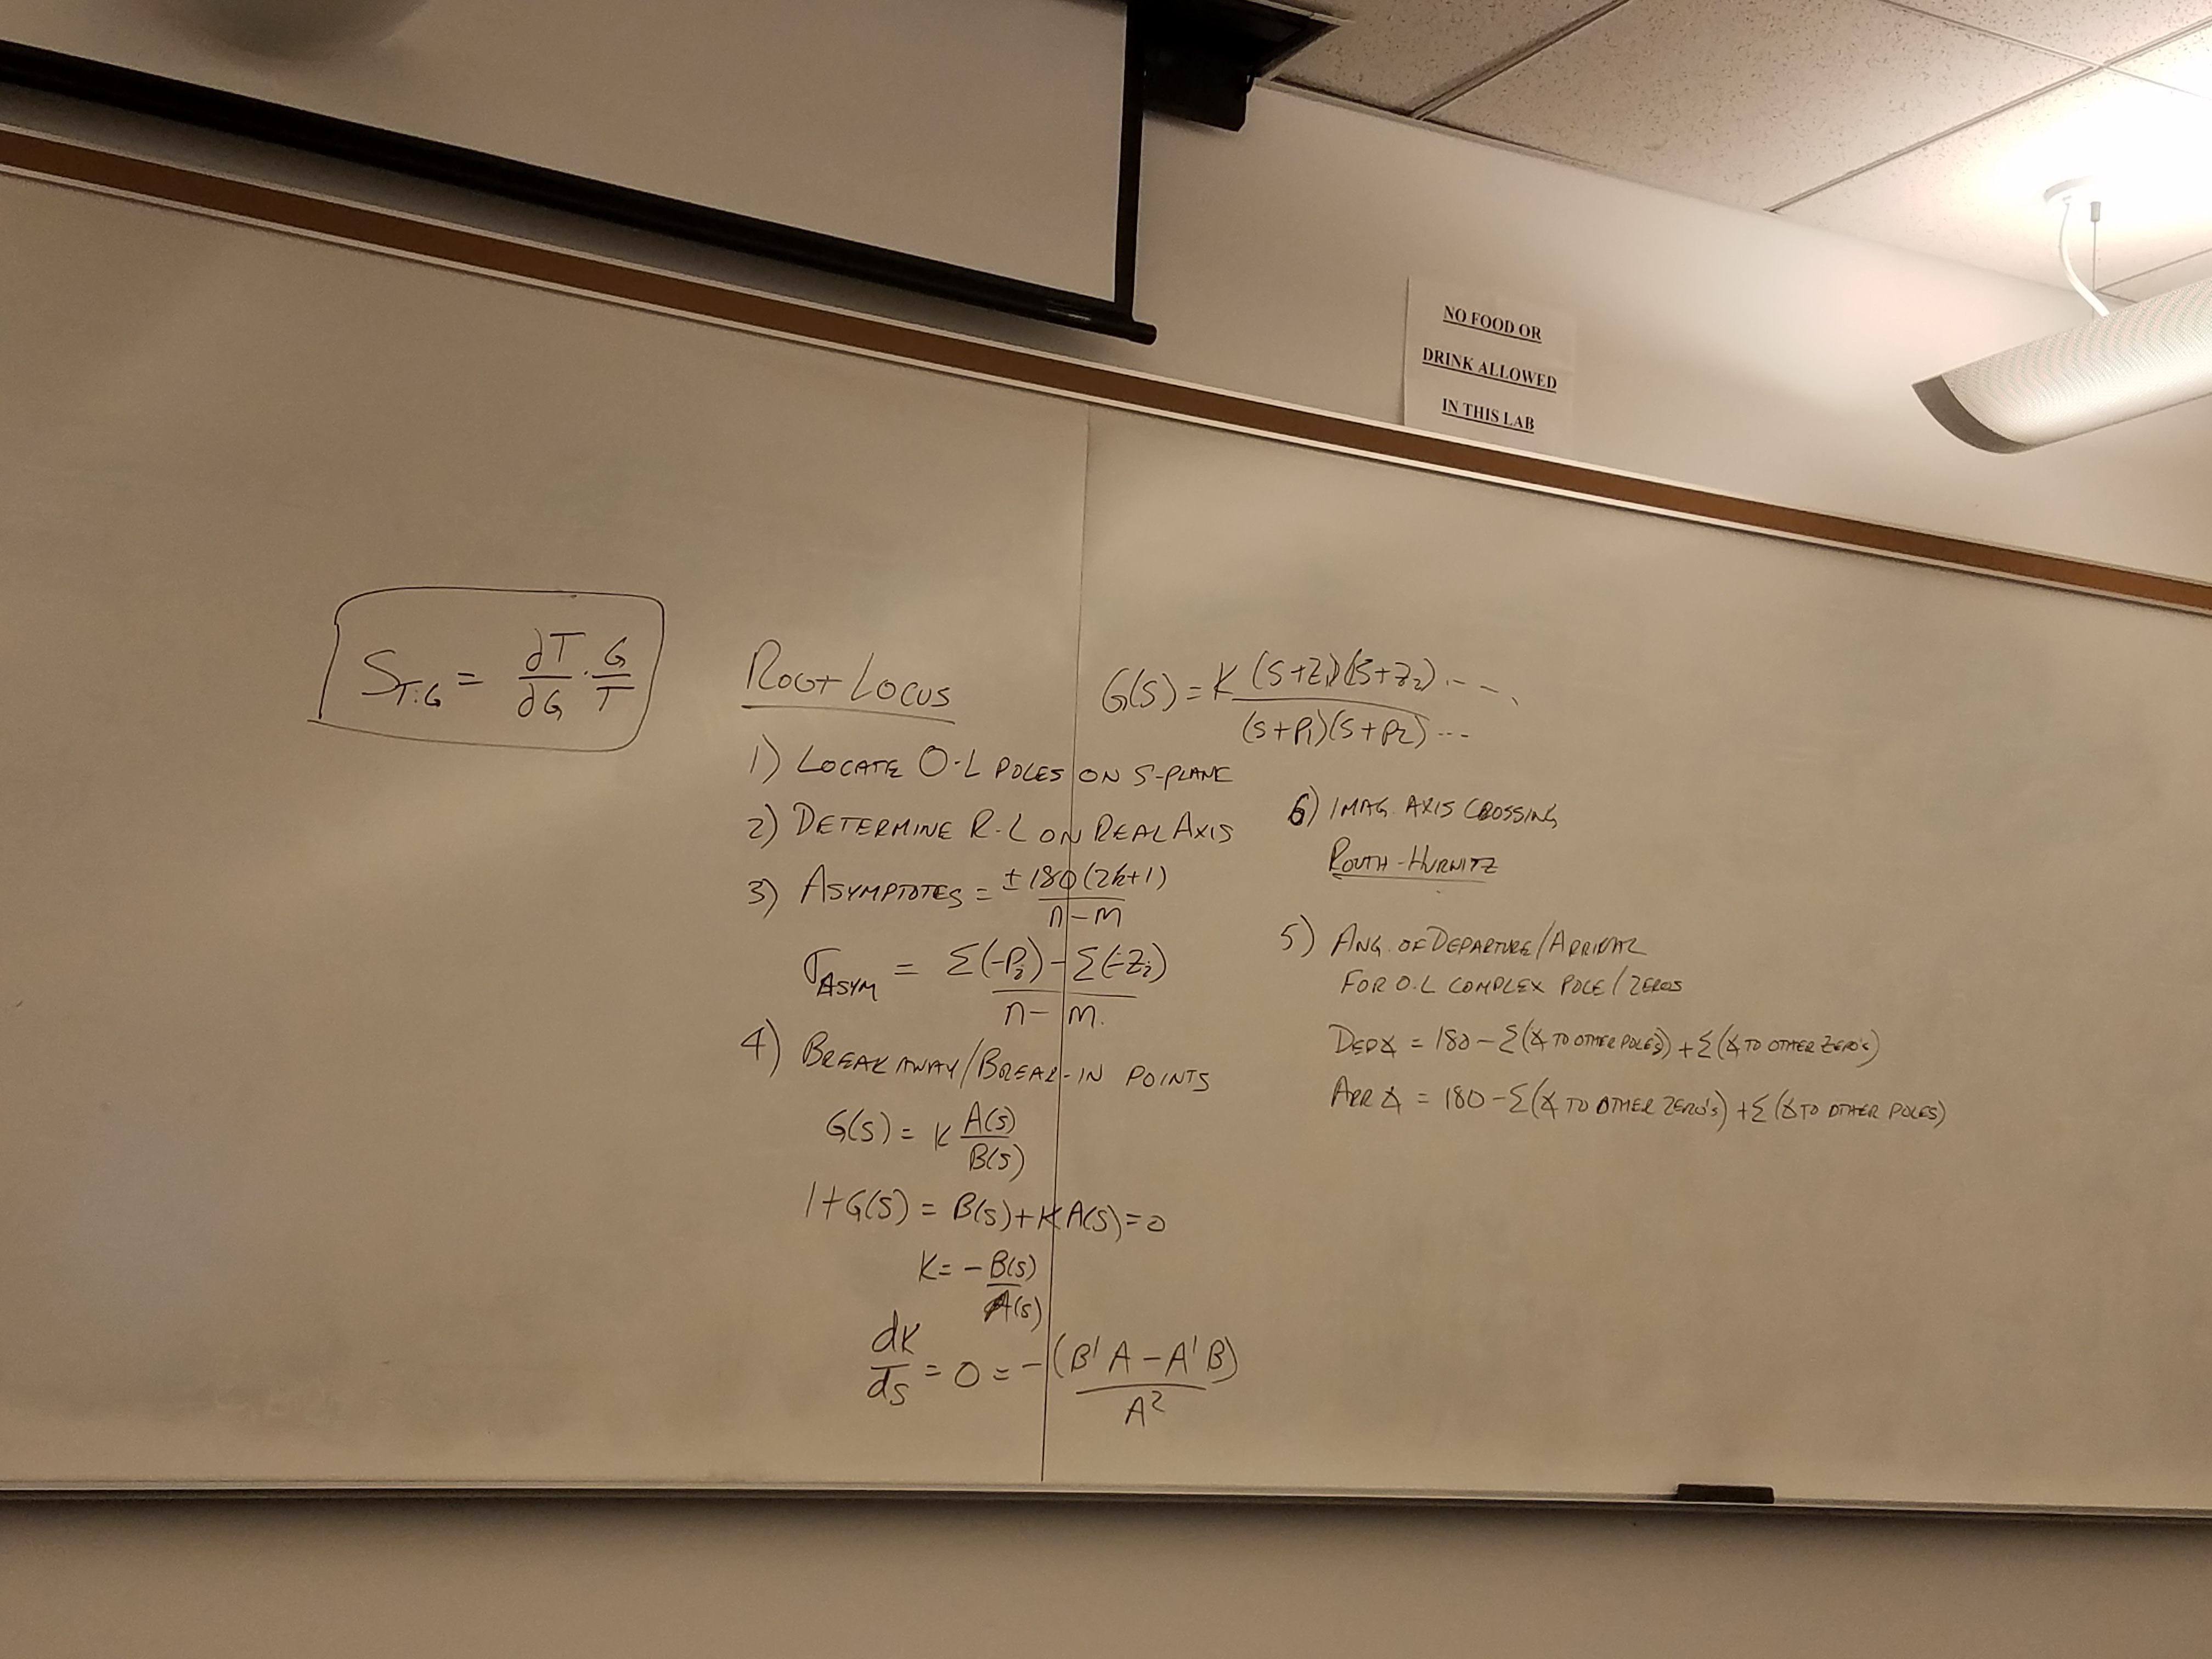 NO FOOD OR
DRINK ALLOWED
IN THIS LAB
S_{T:G} = ∂T/∂G · G/T
ROOT LOCUS
1) LOCATE O-L POLES ON S-PLANE
2) DETERMINE R-L ON REAL AXIS
3) ASYMPTOTES = ±180(2k+1)/(n-m)
σ_{ASYM} = (Σ(-P_i) - Σ(-Z_i))/(n-m.)
4) BREAK AWAY/BREAK-IN POINTS
G(S) = K A(S)/B(S)
1+G(S) = B(S)+KA(S)=0
K= -B(S)/A(S)
dK/ds = 0 = -(B'A-A'B)/A²
G(S) = K (S+Z_1)(S+Z_2).../(S+P_1)(S+P_2)...
6) IMAG. AXIS CROSSING
ROUTH-HURWITZ
5) ANG. OF DEPARTURE/ARRIVAL
FOR O.L COMPLEX POLE/ZEROS
DEP∡ = 180-Σ(∡ TO OTHER POLES)+Σ(∡ TO OTHER ZERO's)
ARR∡ = 180-Σ(∡ TO OTHER ZERO's)+Σ(∡ TO OTHER POLES)